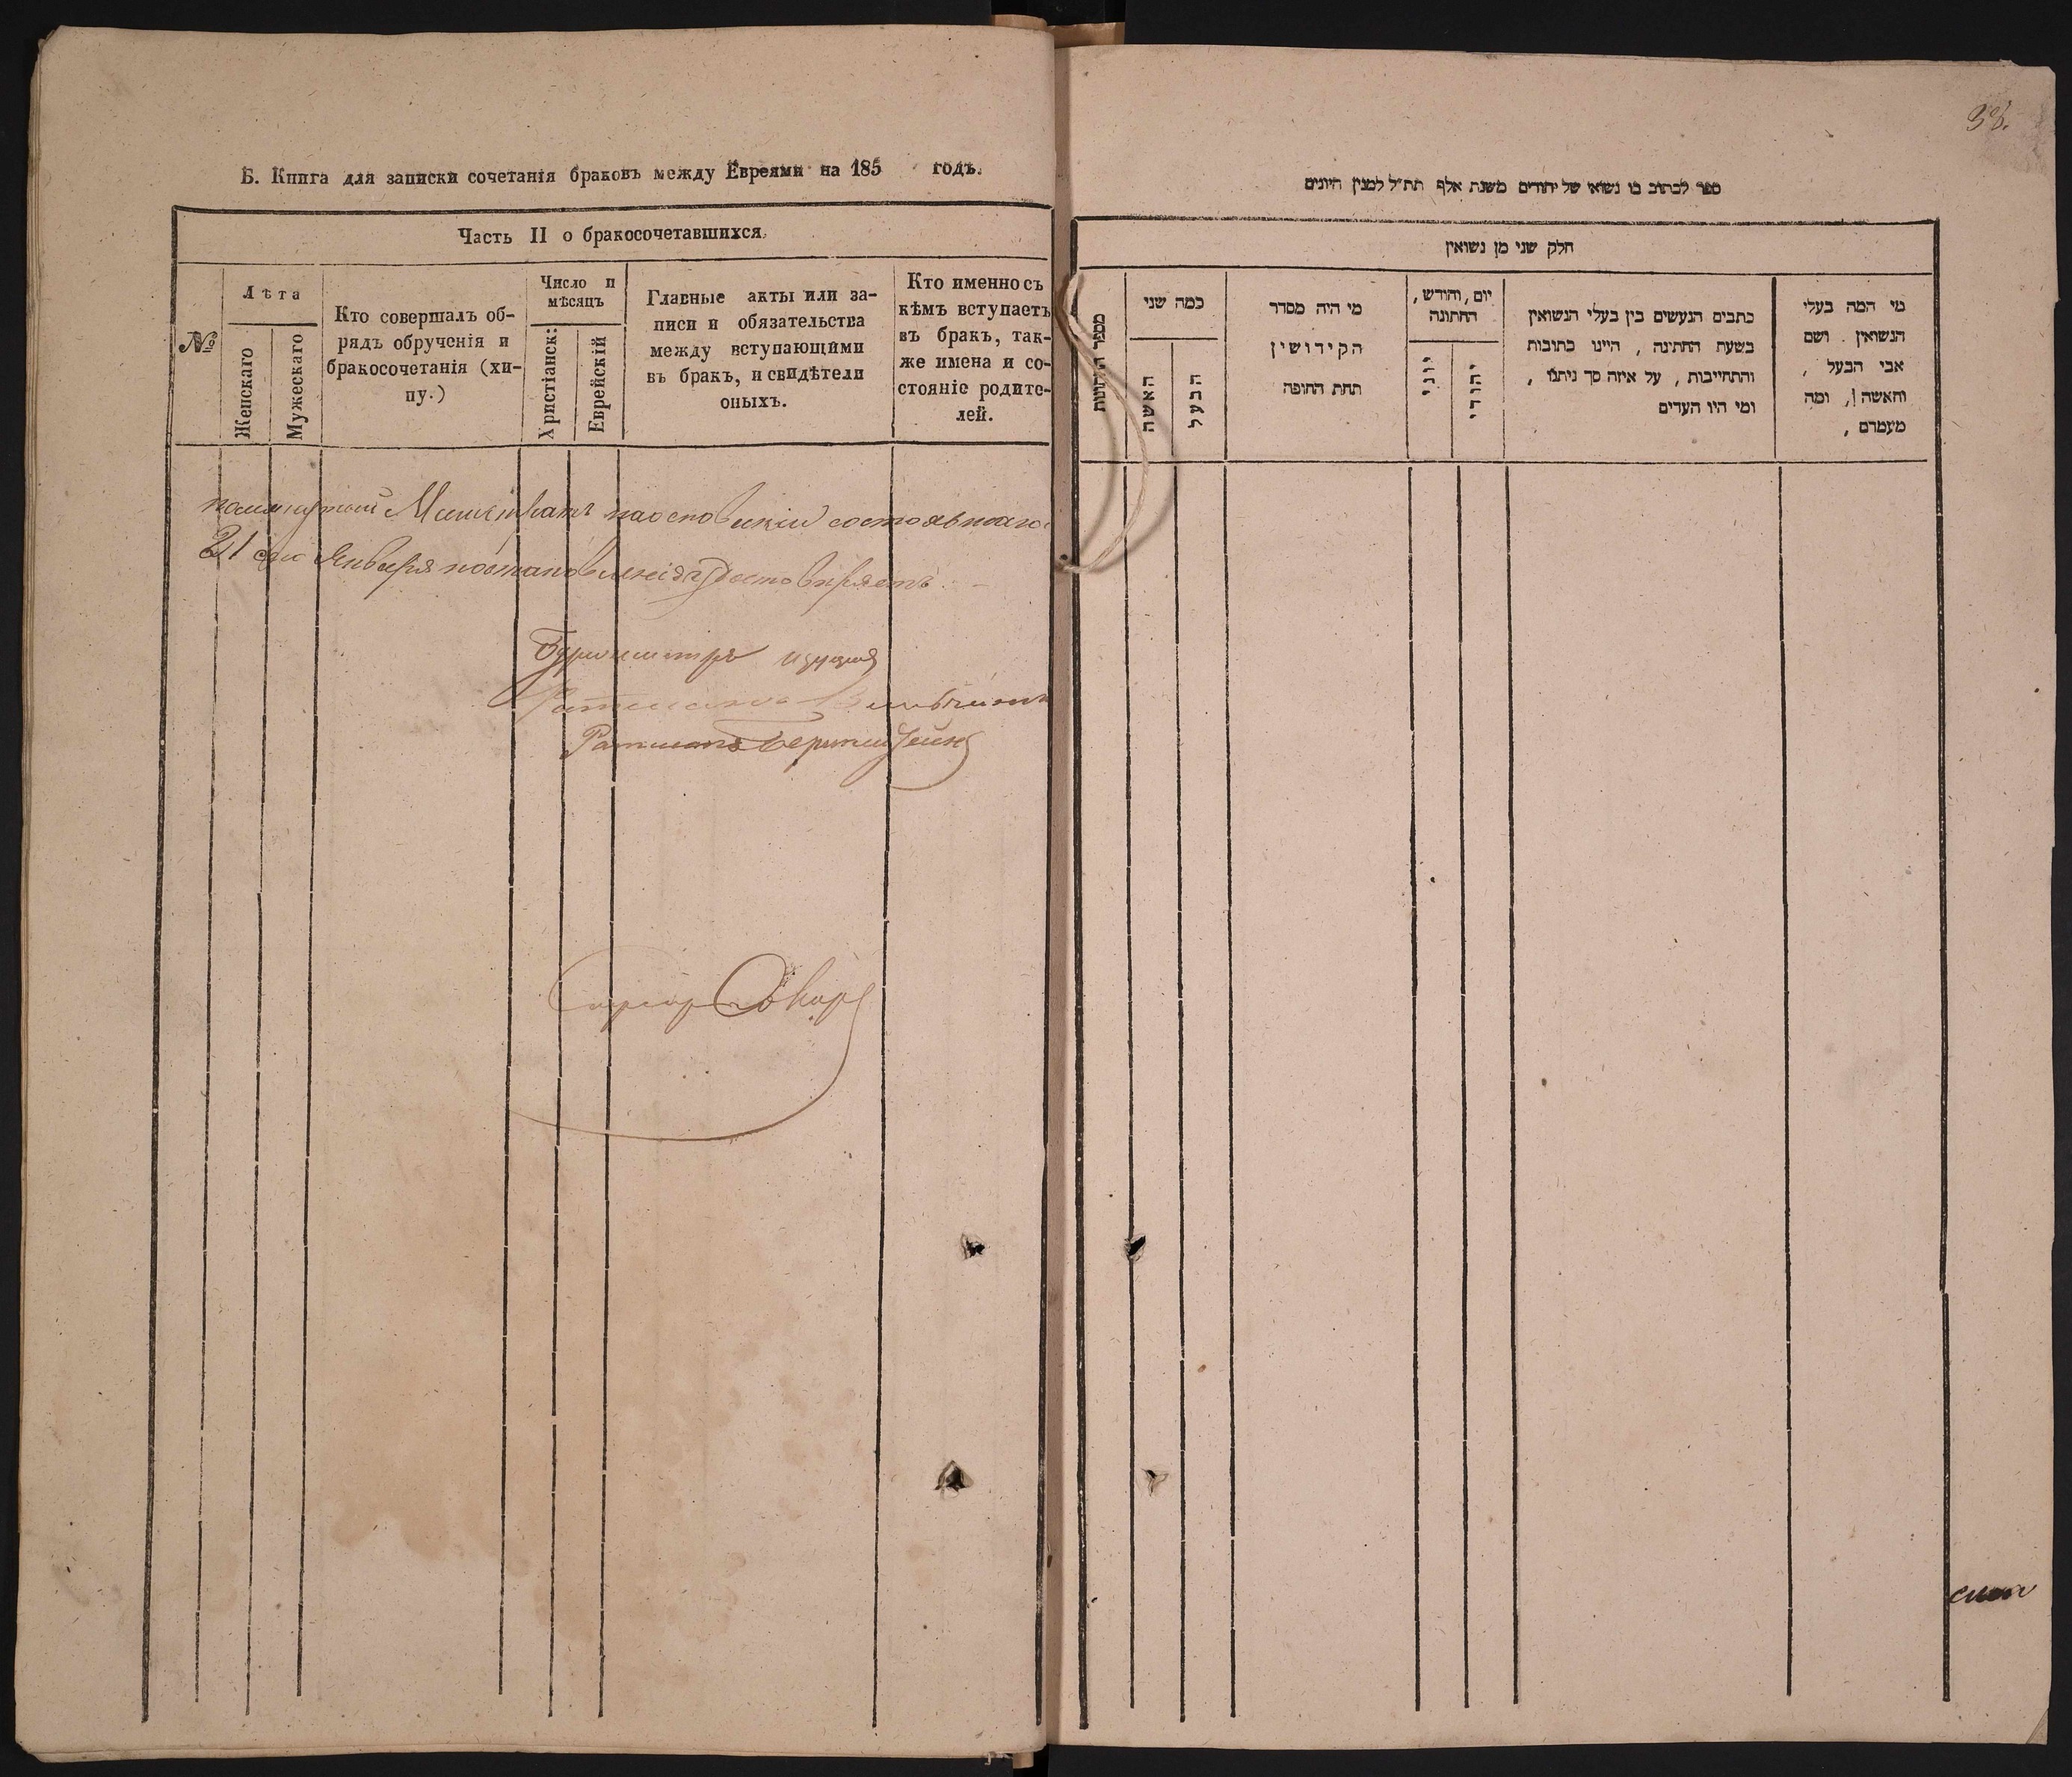 Б. Книга для записки сочетанія браковъ между Евреями на 185 годъ.
Часть II о бракосочетавшихся.
№
Лѣта
Женскаго
Мужескаго
Кто совершалъ об-
рядъ обрученія и
бракосочетанія (хи-
пу.)
Число и
мѣсяцъ
Христіанск:
Еврейскій
Главные акты или за-
писи и обязательства
между вступающими
въ бракъ, и свидѣтели
оныхъ.
Кто именно съ
кѣмъ вступаетъ
въ бракъ, так-
же имена и со-
стояніе родите-
лей.
Магистратъ на основаніи состоявшаго
21 сего Января постановленія удостовѣряетъ
Бургомистръ
Ратманъ
Ратманъ
ספר לכתוב בו נשואי של יהודים משנת אלף תת״ל למנין היונים
חלק שני מן נשואין
מספר החתונות
כמה שני
האשה
הבעל
מי היה מסדר
הקידושין
תחת החופה
יום, וחודש,
החתונה
יוני
יהודי
כתבים הנעשים בין בעלי הנשואין
בשעת החתינה, היינו כתובות
והתחייבות, על איזה סך ניתנו,
ומי היו העדים
מי המה בעלי
הנשואין. ושם
אבי הבעל,
והאשה, ומה
מעמדם,